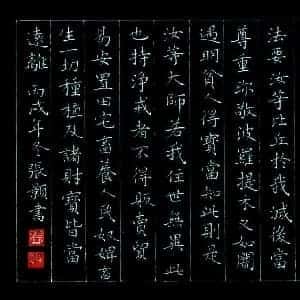 法要汝等比丘於我滅後當
尊重珍敬波羅提木叉如闇
遇明貧人得寶當知此則是
汝等大師若我住世無異此
也持淨戒者不得販賣貿
易安置田宅畜養人民奴婢畜
生一切種植及諸財寶皆當
遠離 丙戌年冬張書